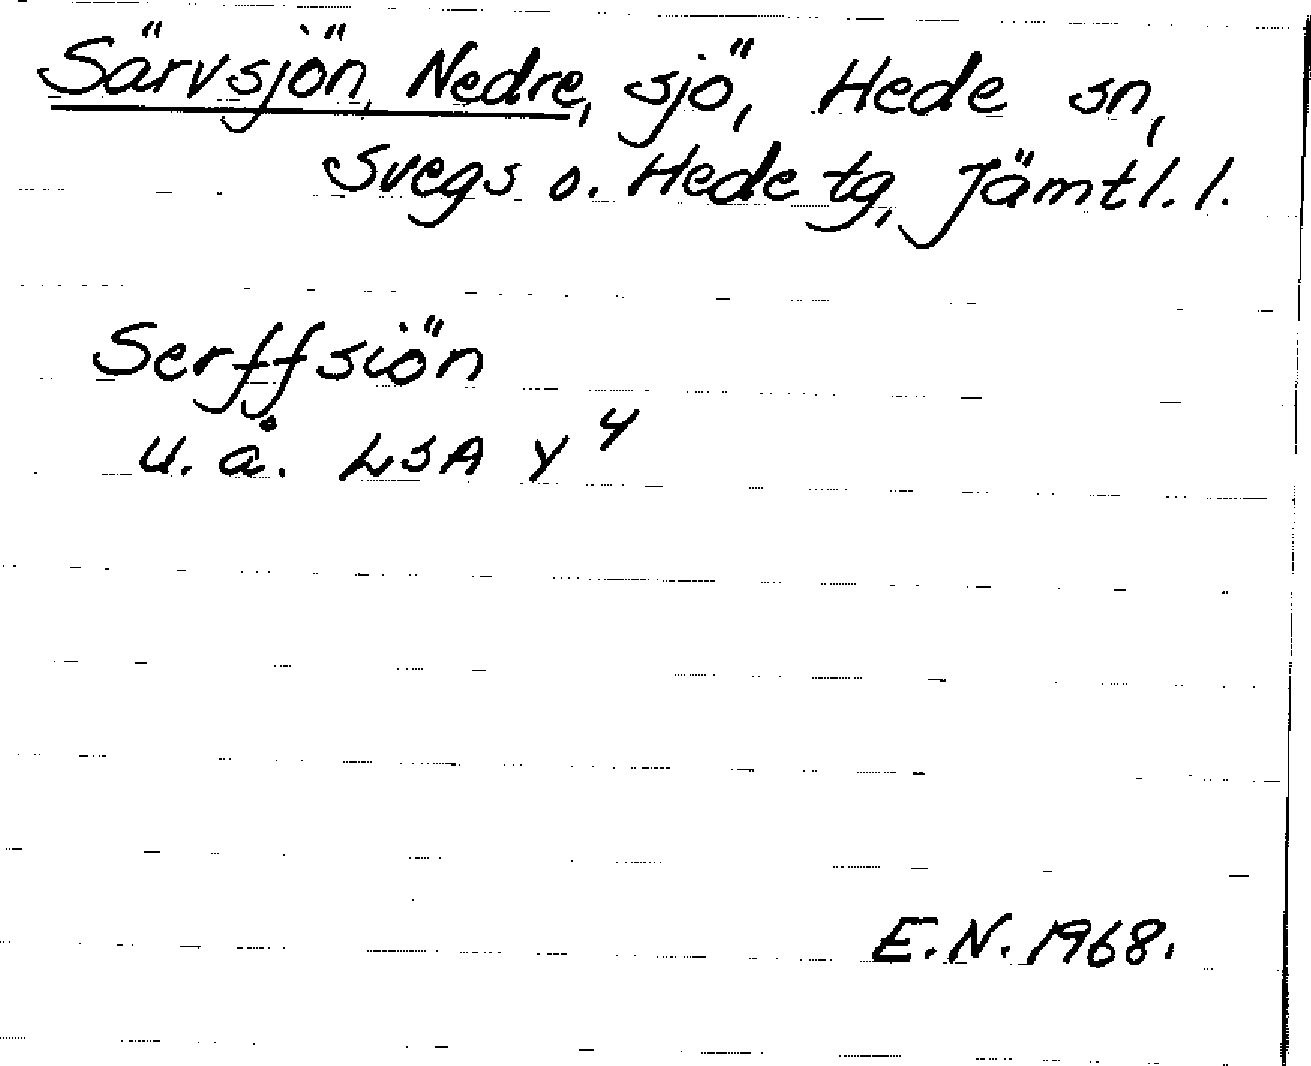 Särvsjön, Nedre, sjö, Hede sn,
Svegs o. Hede tg, Jämtl. l.
Serffsiön
u. å. LSA Y 4
E.N. 1968.